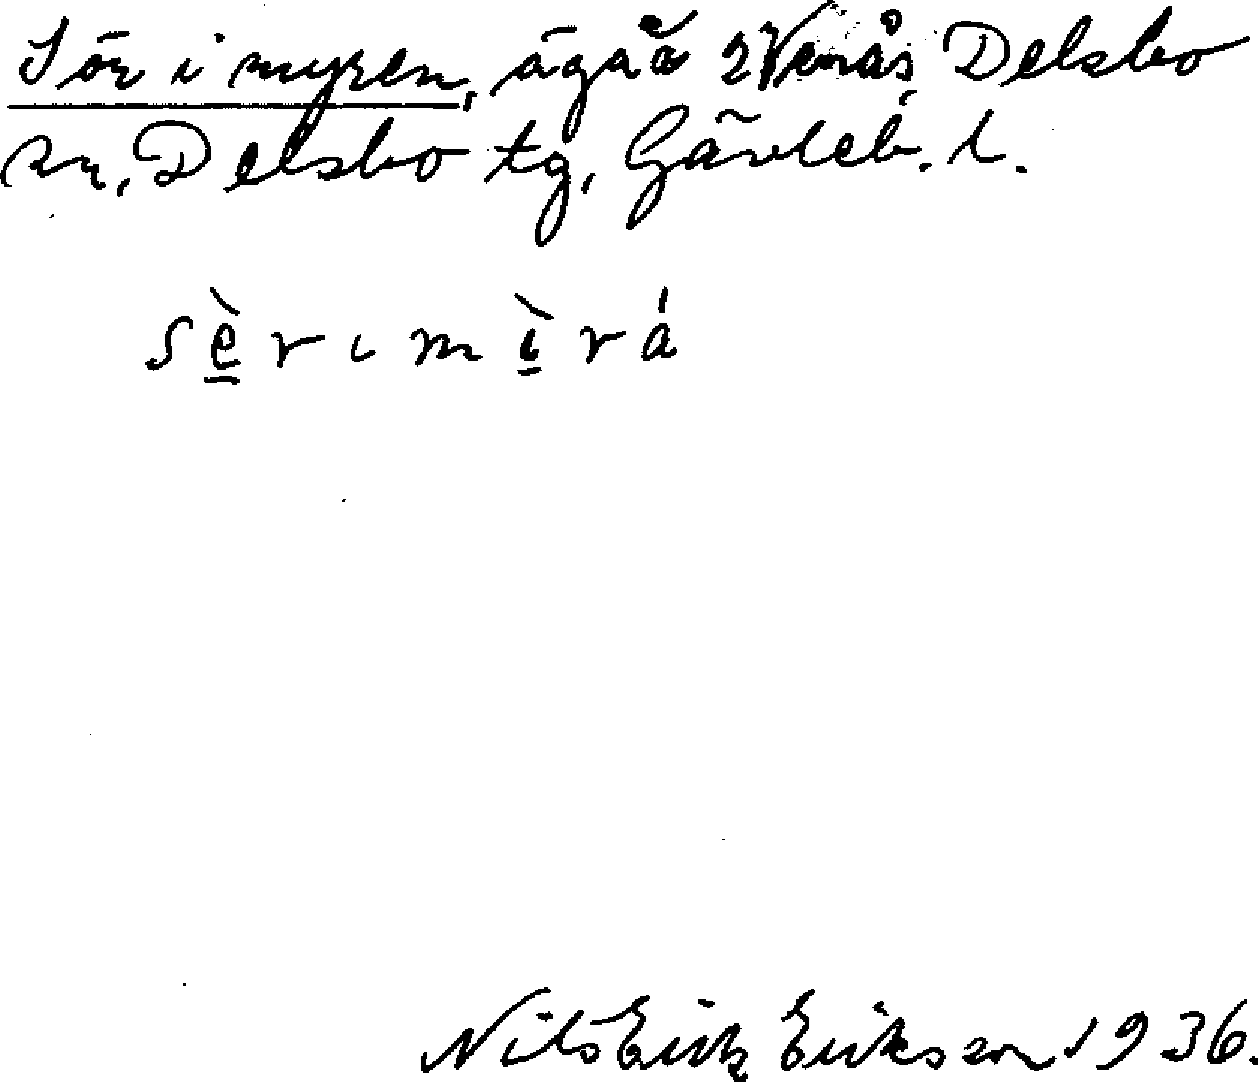 Sör i myren, ägaå 2 Venås Delsbo
sn, Delsbo tg, Gävleb. l.
sèrımìrá
Nils Erik Erikson 1936.